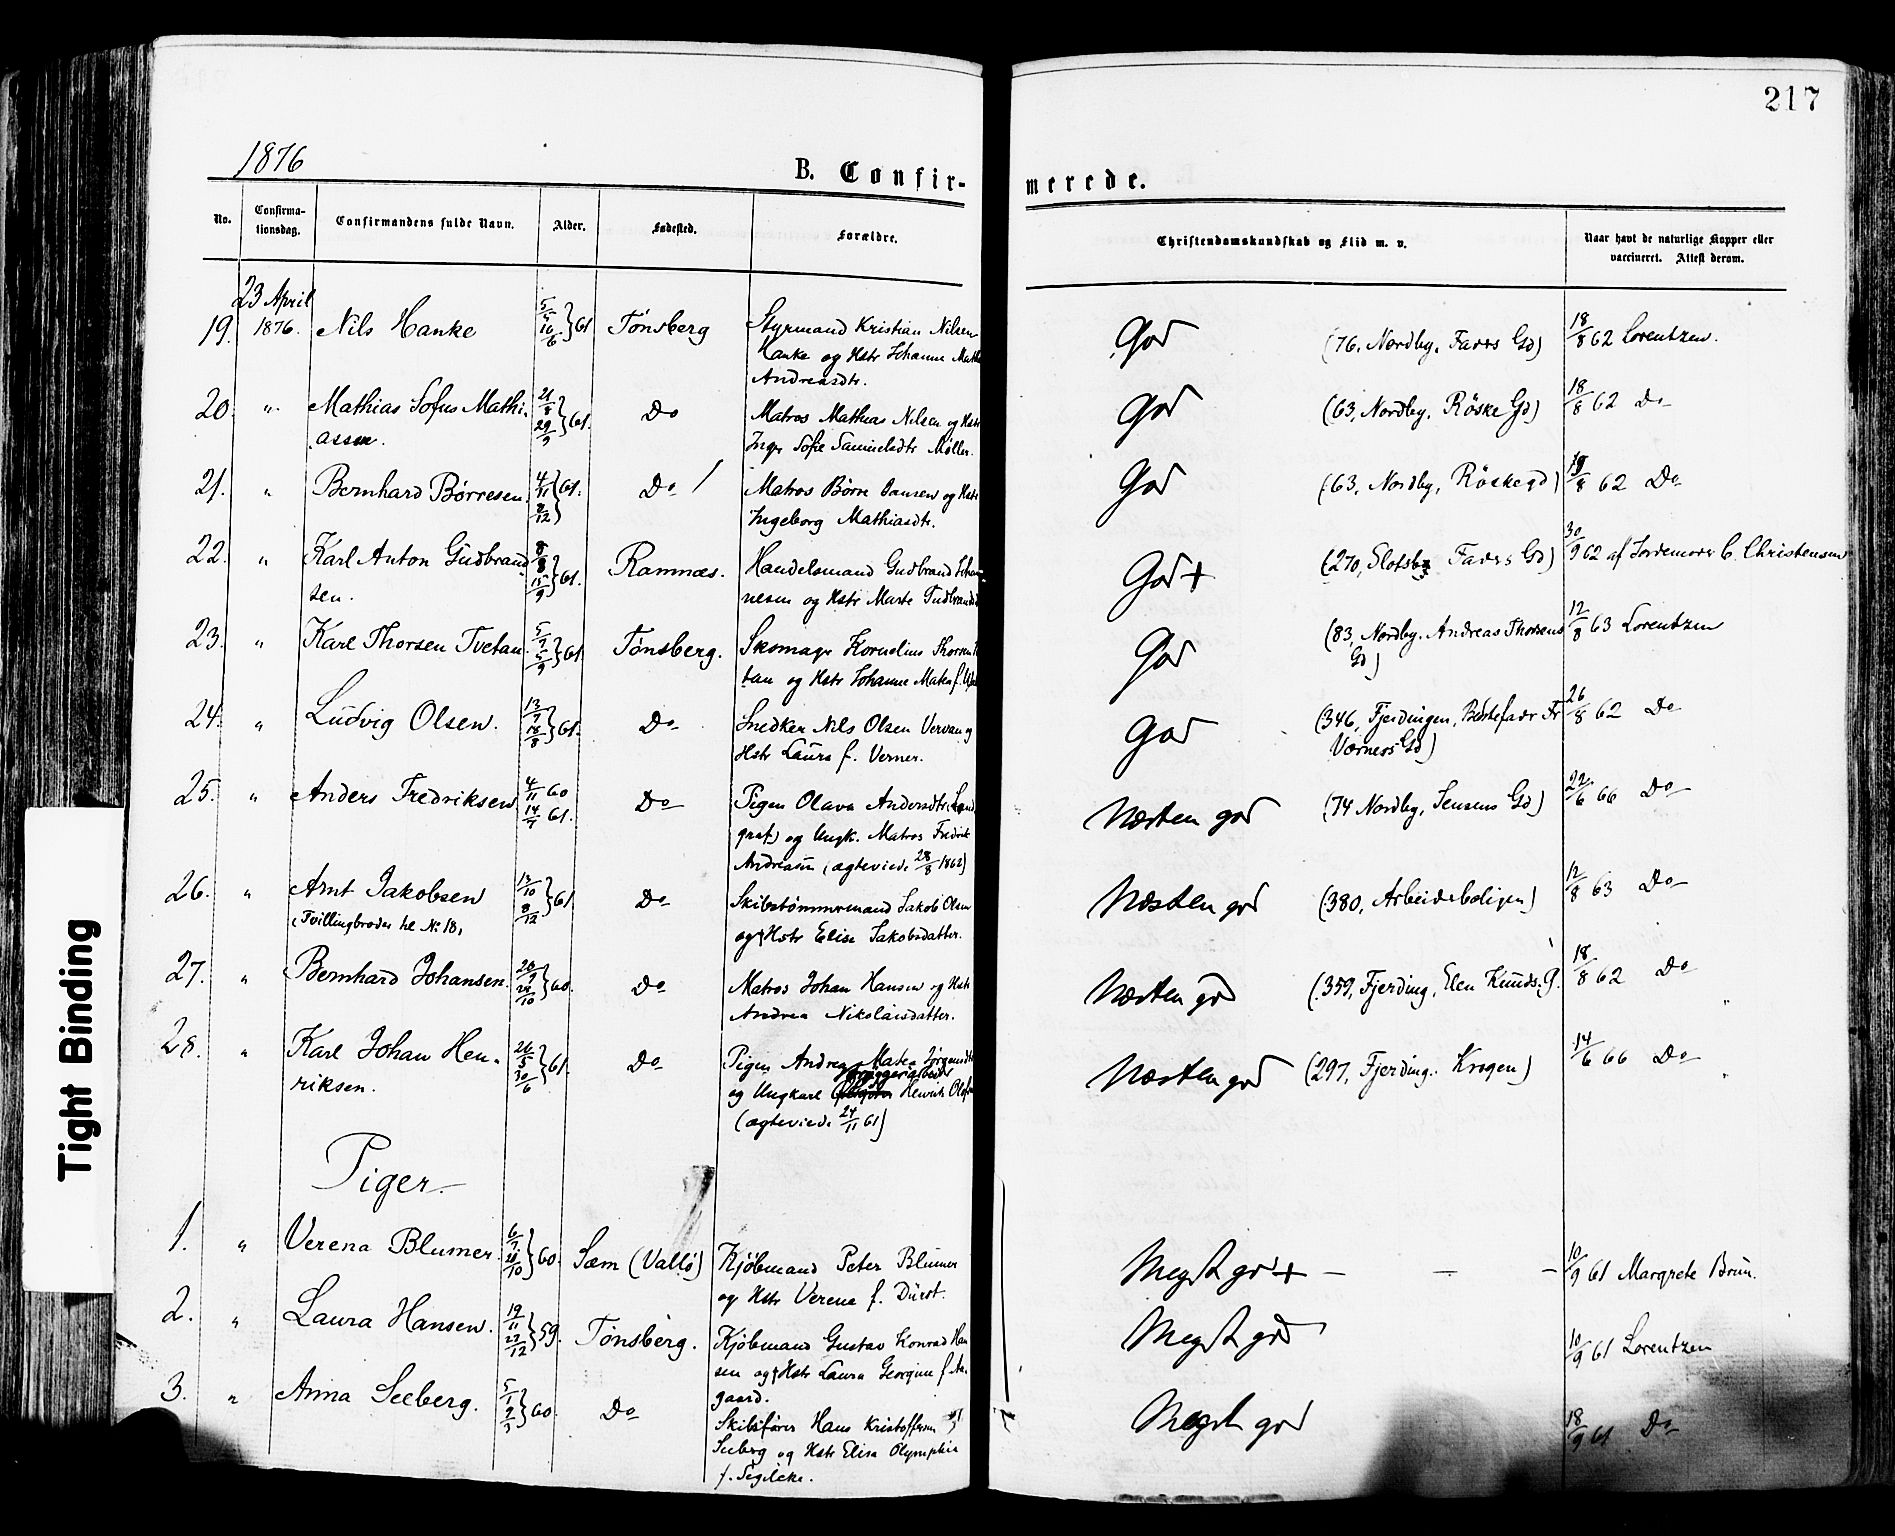 217
1876
B. Confir-
merede.
No.
Confirma-
tionsdag.
Confirmandens fulde Navn.
Alder.
Fødested.
Forældre.
Christendomskundskab og Flid m. v.
Naar havt de naturlige Kopper eller
vaccineret. Attest derom.
23 April
19. 1876. Nils Hanke 5/5 16/6 } 61 Tönsberg Styrmand Kristian Nilsen
Hanke og Hstr Johanne
Andreasdtr.
God (76, Nordby, Faders Gd) 18/8 62 Lorentzen.
20. " Mathias Sofus Mathi- 21/8 29/9 } 61. Do Matros Mathias Nilsen og Hstr
assen. Inger Sofie Samuelsdtr Møller.
God (63, Nordby, Röske Gd) 18/8 62 Do
21. " Bernhard Børresen 4/11 8/12 } 61. Do / Matros Børre Hansen og Hstr
Ingeborg Mathiasdtr.
God (63, Nordby, Röskegd) /8 62 Do
22. " Karl Anton Gudbrand- 8/8 15/9 } 61. Ramnæs. Handelsmand Gudbrand Johan-
sen. nesen og Hstr Marte
God + (270, Slotsb, Faders Gd) 30/9 62 af Jordemoder C. Christensen
23. " Karl Thorsen Tvetan 5/7 /9 } 61. Tönsberg. Skomager Kornelius Thorsen
tan og Hstr Johanne
God (83, Nordby. Andreas Thorsens
Gd) 12/8 63 Lorentzen
24. " Ludvig Olsen. 13/7 18/8 } 61. Do Snedker Nils Olsen og
Hstr Laura f. Verner.
God (346, Fjerdingen, Bestefader Fr
Værners Gd) 26/8 62 Do
25. " Anders Fredriksen 4/11 60 14/7 61. Do Pigen Olava Andersdtr
graf) og Ungk. Matros Fredrik
Andreasen (ægteviede 28/8 1862)
Næsten god (74 Nordby, Jensens Gd) 22/6 66 Do
26. " Arnt Jakobsen 13/10 8/12 } 61 Do Skibstømmermand Jakob Olsen
(Tvillingbroder til No 18) og Hstr Elise Jakobsdatter.
Næsten god (380, Arbeiderboligen) 12/8 63 Do
27. " Bernhard Johansen. 20/9 28/10 } 60. Do Matros Johan Hansen og Hstr
Andrea Nikolaisdatter.
Næsten god (359, Fjerding, Elen Knuds. G. 18/8 62 Do
28. " Karl Johan Hen- 26/5 30/6 } 61. Do Pigen Andrea Mathea Jørgensdtr
riksen. og Ungkarl Henrik
(ægteviede 24/11 61)
Næsten god (297, Fjerding. Krogen) 14/6 66 Do
Piger.
1. " Verena Blumer 6/7 28/10 } 60. Sæm (Vallø) Kjöbmand Peter Blumer
og Hstr Verena f. Dürst.
Meget god + — — — 10/9 61 Margrete Brun.
2. " Laura Hansen. 19/11 27/12 } 59. Tönsberg. Kjöbmand Gustav Konrad Han
sen og Hstr Laura Georgine f. Aa
gaard.
Meget god 10/9 61 Lorentzen
3. " Anna Seeberg. 5/1 9/3 } 60. Do Skibsfører Hans Kristoffersen
Seeberg og Hstr Elisa Olymphia
f.
Meget god 18/9 61 Do
Tight Binding